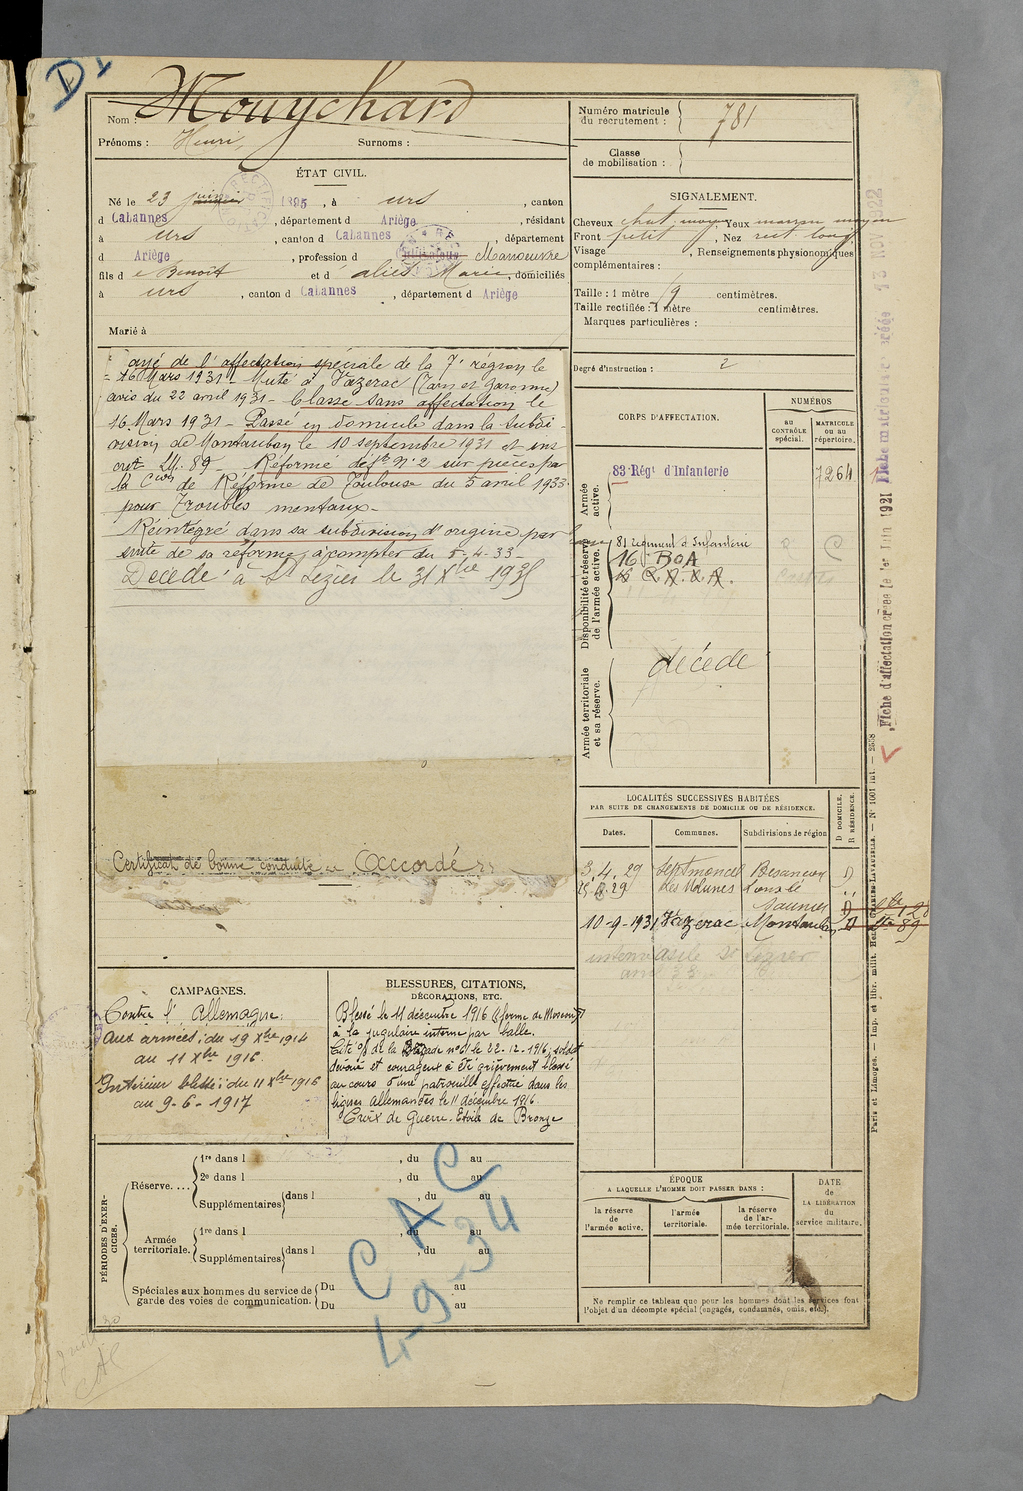 Nom : Mouychard
Prénoms : Henri, Surnoms :
Numéro matricule du recrutement : 781
Classe de mobilisation :
ÉTAT CIVIL.
Né le 23 1895, à Urs, canton
d Cabannes, département d Ariège, résidant
à Urs, canton d Cabannes, département
d Ariège, profession d Manoeuvre
fils d e Benoît et d' Aliès Marie, domiciliés
à Urs, canton d Cabannes, département d Ariège
Marié à
SIGNALEMENT.
Cheveux chat. moyen Yeux marron moyen
Front petit, Nez rect. long
Visage, Renseignements physionomiques
complémentaires :
Taille : 1 mètre centimètres.
Taille rectifiée : 1 mètre centimètres.
Marques particulières :
Degré d'instruction : 2
ayé de l'affectation spéciale de la 7e région le
16 Mars 1931 - Muté à Vazerac (Tarn et Garonne)
avis du 22 avril 1931 - Classé sans affectation le
16 Mars 1931 - Passé en domicile dans la subdi-
vision de Montauban le 10 septembre 1931 et ins
crit 89 - Réformé déf. n° 2 sur pièces par
la Con de Réforme de Toulouse du 5 avril 1933
pour troubles mentaux -
Réintégré dans sa subdivision d'origine par
suite de sa réforme, à compter du 5-4-33 -
Décédé à St Lizier le 31 Xbre 1935
Certificat de bonne conduite Accordé
CORPS D'AFFECTATION.
NUMÉROS
au CONTRÔLE spécial.
MATRICULE ou au répertoire.
Armée active.
83 Régt d'Infanterie 7264
Disponibilité et réserve de l'armée active.
81 régiment d'Infanterie
16 BOA
Armée territoriale et sa réserve.
décédé
LOCALITÉS SUCCESSIVES HABITÉES
PAR SUITE DE CHANGEMENTS DE DOMICILE OU DE RÉSIDENCE.
Dates. Communes. Subdivisions de région
D DOMICILE. R RÉSIDENCE.
3.4.29 Septmoncel Besançon D
29 Les Molunes Lons le
Saunier D
10-9-1931 Vazerac Montauban D 89
interné asile St Lizier
CAMPAGNES.
Contre l'Allemagne :
Aux armées : du 19 Xbre 1914
au 11 Xbre 1916
Intérieur blessé : du 11 Xbre 1916
au 9-6-1917
BLESSURES, CITATIONS,
DÉCORATIONS, ETC.
Blessé le 11 décembre 1916
à la jugulaire interne par balle.
Cité de la Brigade n° 61 le 22-12-1916, soldat
dévoué et courageux a été grièvement blessé
au cours d'une patrouille effectuée dans les
lignes allemandes le 11 décembre 1916
Croix de Guerre. Etoile de Bronze
PÉRIODES D'EXERCICES.
Réserve....
1re dans l , du au
2e dans l , du au
Supplémentaires dans l , du au
Armée territoriale.
1re dans l , du au
Supplémentaires dans l , du au
Spéciales aux hommes du service de garde des voies de communication.
Du au
Du au
C A C
4-9-34
ÉPOQUE
A LAQUELLE L'HOMME DOIT PASSER DANS :
la réserve de l'armée active.
l'armée territoriale.
la réserve de l'armée territoriale.
DATE de LA LIBÉRATION du service militaire.
Ne remplir ce tableau que pour les hommes dont les services font
l'objet d'un décompte spécial (engagés, condamnés, omis, etc.).
Fiche d'affectation créée le 1er Juin 1921
Fiche matricule créée 13 NOV 1922
Paris et Limoges. — Imp. et libr. milit. Henri CHARLES-LAVAUZELLE. — N° 1001 Int. — 2358